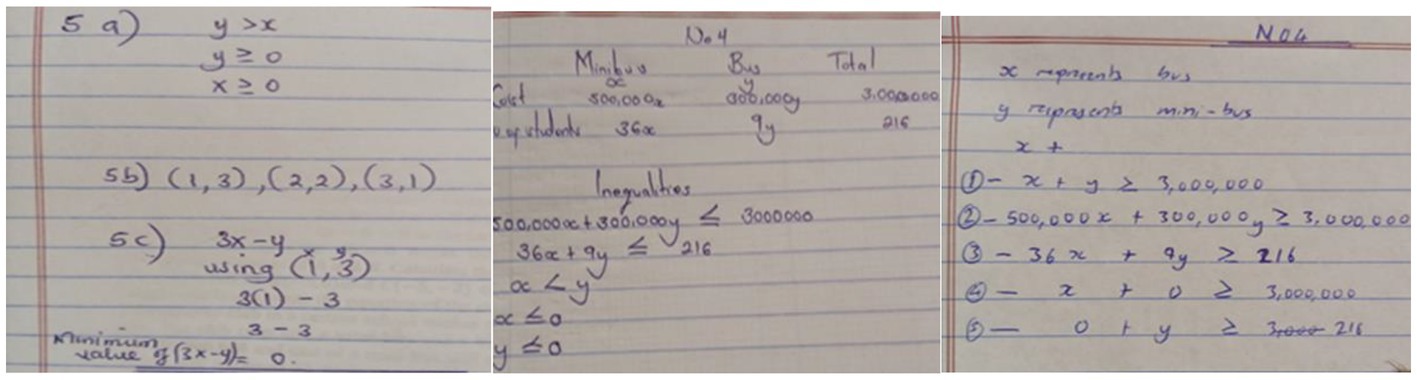 5 a) y > x
y ≥ 0
x ≥ 0
5b) (1,3), (2,2), (3,1)
5c) 3x - y
x y
using (1, 3)
3(1) - 3
3 - 3
Minimum
value of (3x-y) = 0.
No 4
Minibus Bus Total
x y
Cost 500,000x 300,000y 3,000,000
o. of students 36x 9y 216
Inequalities
500,000x + 300,000y ≤ 3000000
36x + 9y ≤ 216
x < y
x ≤ 0
y ≤ 0
NO4
x represents bus
y represents mini-bus
x +
① - x + y ≥ 3,000,000
② - 500,000x + 300,000y ≥ 3,000,000
③ - 36x + 9y ≥ 216
④ - x + 0 ≥ 3,000,000
⑤ - 0 + y ≥ 3,000 216